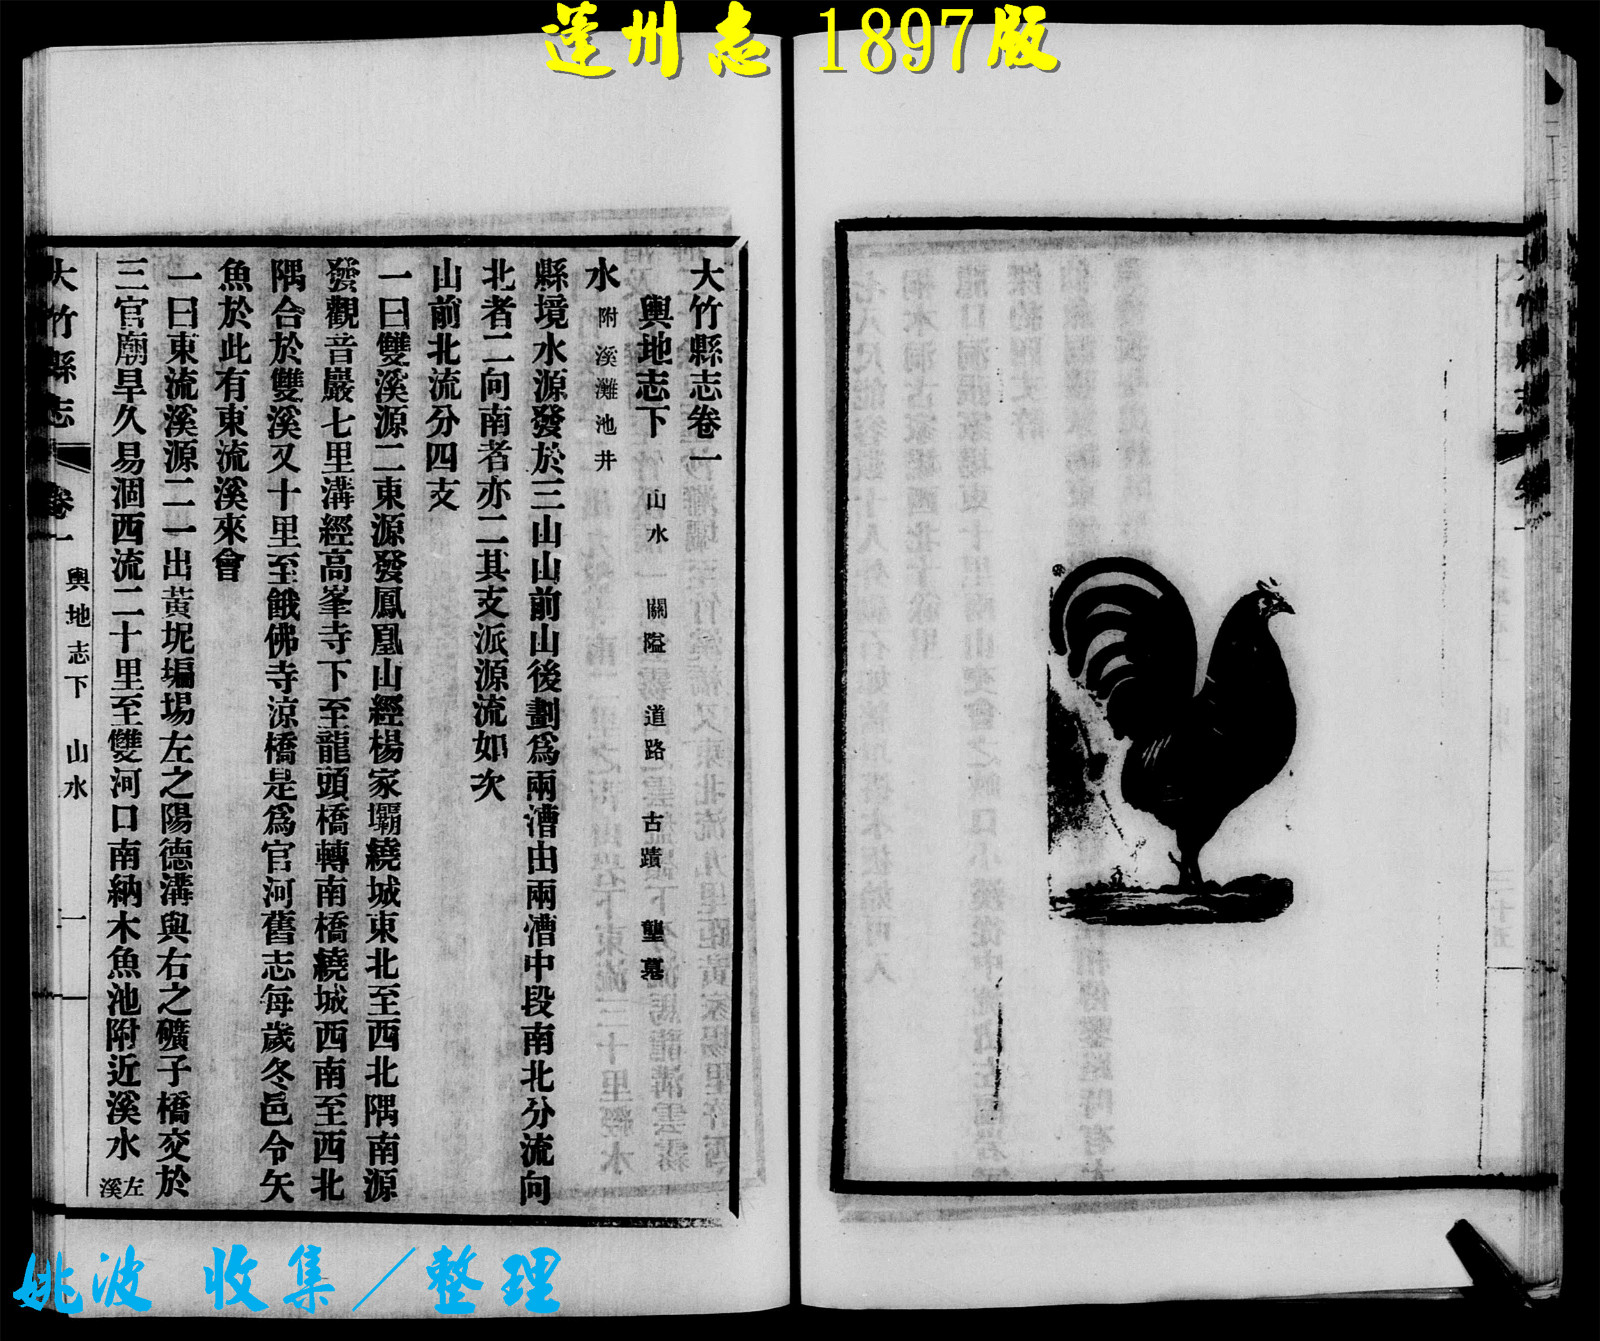 蓬州志 1897版
大竹縣志卷一
輿地志下 山水 關隘 道路 古蹟 塋墓
水 附溪灘池井
縣境水源發於三山山前山後劃爲兩漕由兩漕中段南北分流向
北者二向南者亦二其支派源流如次
山前北流分四支
一曰雙溪源二東源發鳳凰山經楊家壩繞城東北至西北隅南源
發觀音巖七里溝經高峯寺下至龍頭橋轉南橋繞城西南至西北
隅合於雙溪又十里至餓佛寺涼橋是爲官河舊志每歲冬邑令矢
魚於此有東流溪來會
一曰東流溪源二一出黃坭塥場左之陽德溝與右之礦子橋交於
三官廟旱久易涸西流二十里至雙河口南納木魚池附近溪水 左溪
大竹縣志 卷一 輿地志下 山水 一
姚波 收集／整理